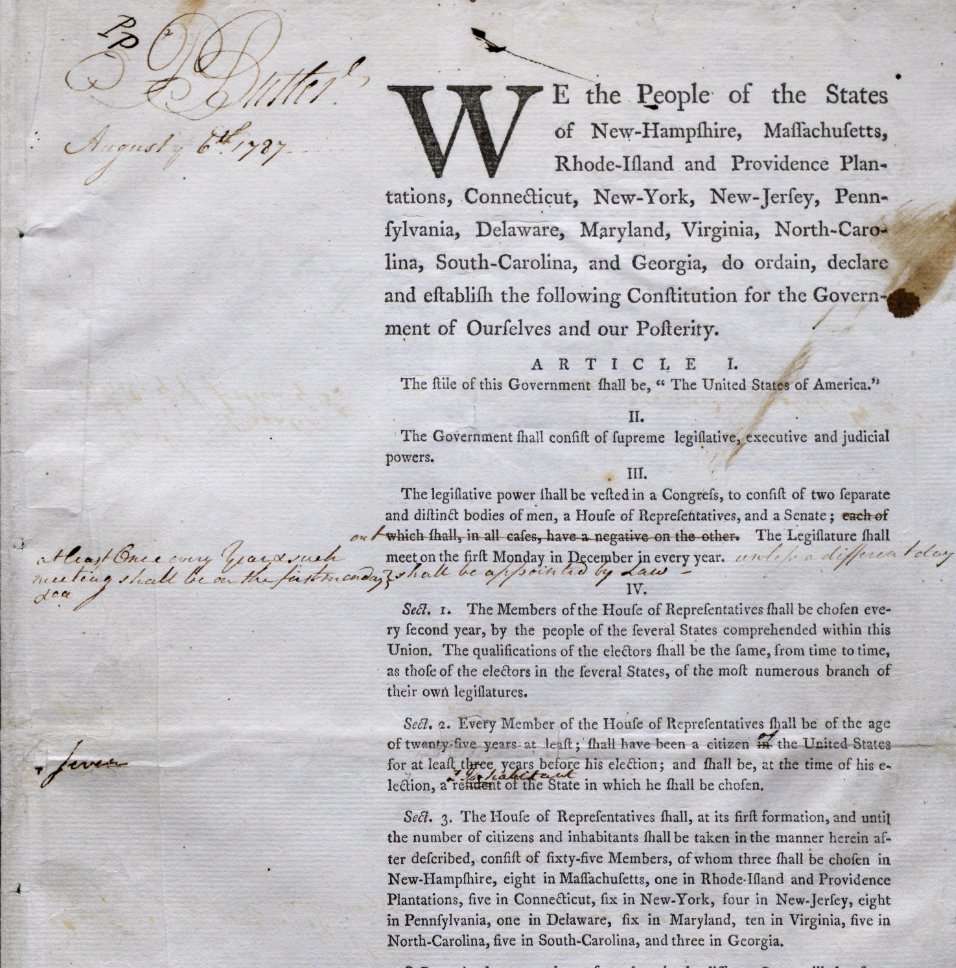 PP
P Butler
August ye 6th. 1787
WE the People of the States
of New-Hampſhire, Maſſachuſetts,
Rhode-Iſland and Providence Plan-
tations, Connecticut, New-York, New-Jerſey, Penn-
ſylvania, Delaware, Maryland, Virginia, North-Caro-
lina, South-Carolina, and Georgia, do ordain, declare
and eſtabliſh the following Conſtitution for the Govern-
ment of Ourſelves and our Poſterity.
ARTICLE I.
The ſtile of this Government ſhall be, “ The United States of America.”
II.
The Government ſhall conſiſt of ſupreme legiſlative, executive and judicial
powers.
III.
The legiſlative power ſhall be veſted in a Congreſs, to conſiſt of two ſeparate
and diſtinct bodies of men, a Houſe of Repreſentatives, and a Senate ; each of
out
which ſhall, in all caſes, have a negative on the other. The Legiſlature ſhall
at least Once every Year & such
meet on the firſt Monday in December in every year. unless a different day
meeting shall be on the first monday
shall be appointed by Law
IV.
Sect. 1. The Members of the Houſe of Repreſentatives ſhall be choſen eve-
ry ſecond year, by the people of the ſeveral States comprehended within this
Union. The qualifications of the electors ſhall be the ſame, from time to time,
as thoſe of the electors in the ſeveral States, of the moſt numerous branch of
their own legiſlatures.
Sect. 2. Every Member of the Houſe of Repreſentatives ſhall be of the age
of
of twenty-five years at leaſt ; ſhall have been a citizen in the United States
seven
for at leaſt three years before his election ; and ſhall be, at the time of his e-
Inhabitant
lection, a reſident of the State in which he ſhall be choſen.
Sect. 3. The Houſe of Repreſentatives ſhall, at its firſt formation, and until
the number of citizens and inhabitants ſhall be taken in the manner herein af-
ter deſcribed, conſiſt of ſixty-five Members, of whom three ſhall be choſen in
New-Hampſhire, eight in Maſſachuſetts, one in Rhode-Iſland and Providence
Plantations, five in Connecticut, ſix in New-York, four in New-Jerſey, eight
in Pennſylvania, one in Delaware, ſix in Maryland, ten in Virginia, five in
North-Carolina, five in South-Carolina, and three in Georgia.